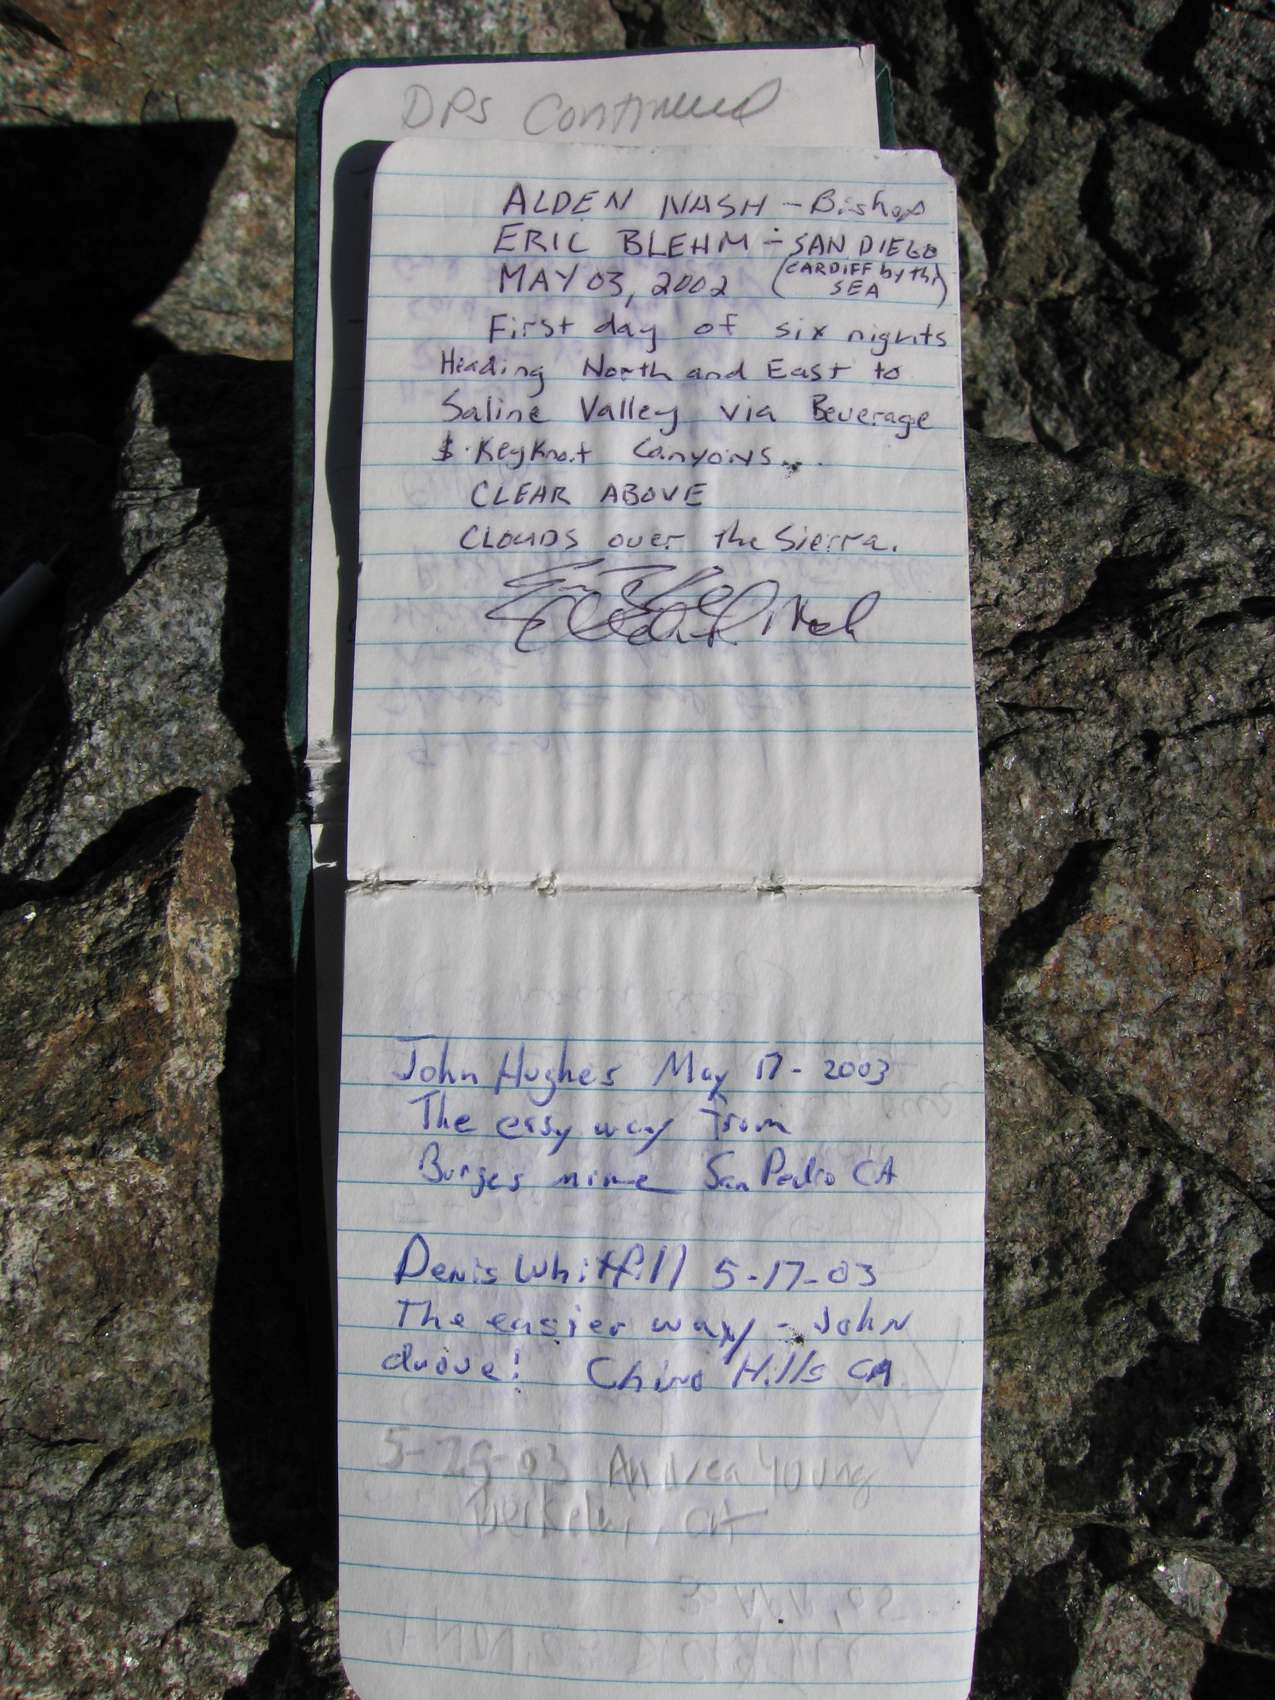 DPS Continued
ALDEN NASH - Bishop
ERIC BLEHM - SAN DIEGO
MAY 03, 2002 (CARDIFF by the SEA)
First day of six nights
Heading North and East to
Saline Valley via Beverage
& Keyknot Canyons...
CLEAR ABOVE
CLOUDS over the Sierra.
John Hughes May 17-2003
The easy way From
Burges mine San Pedro CA
Denis Whitfill 5-17-03
The easier way - John
drove! Chino Hills CA
5-29-03 Andrea Young
Berkeley, CA